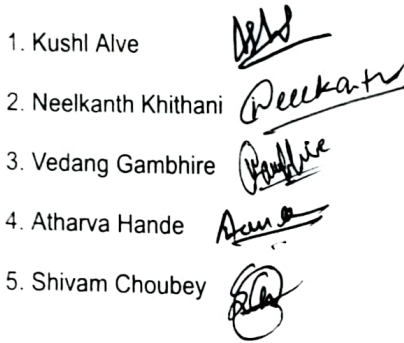 1. Kushl Alve
2. Neelkanth Khithani Neelkanth
3. Vedang Gambhire Gambhire
4. Atharva Hande
5. Shivam Choubey